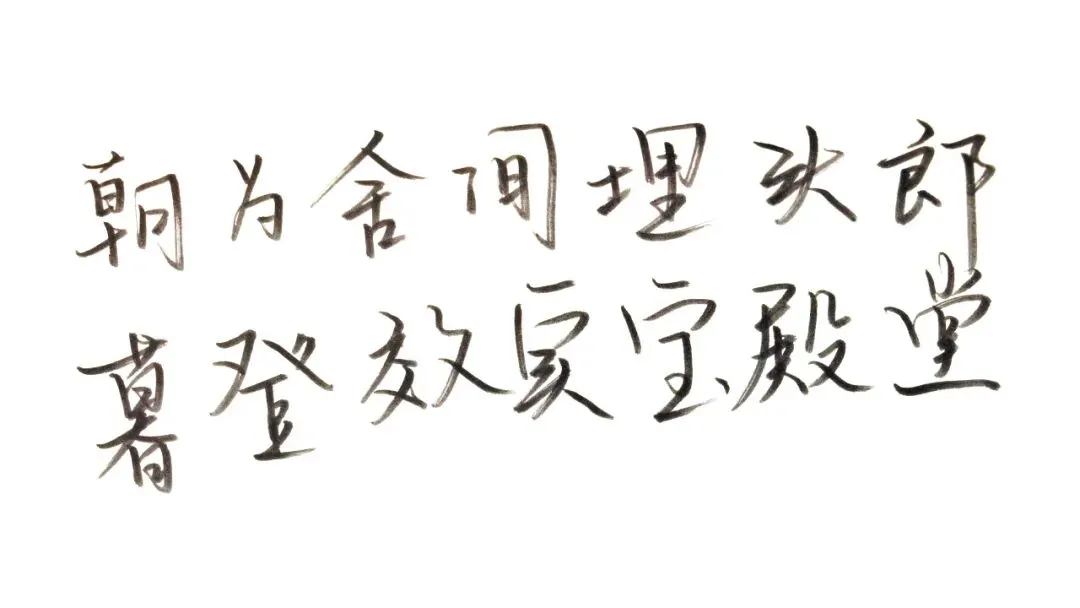 朝为舍间埋头郎
暮登效实宝殿堂